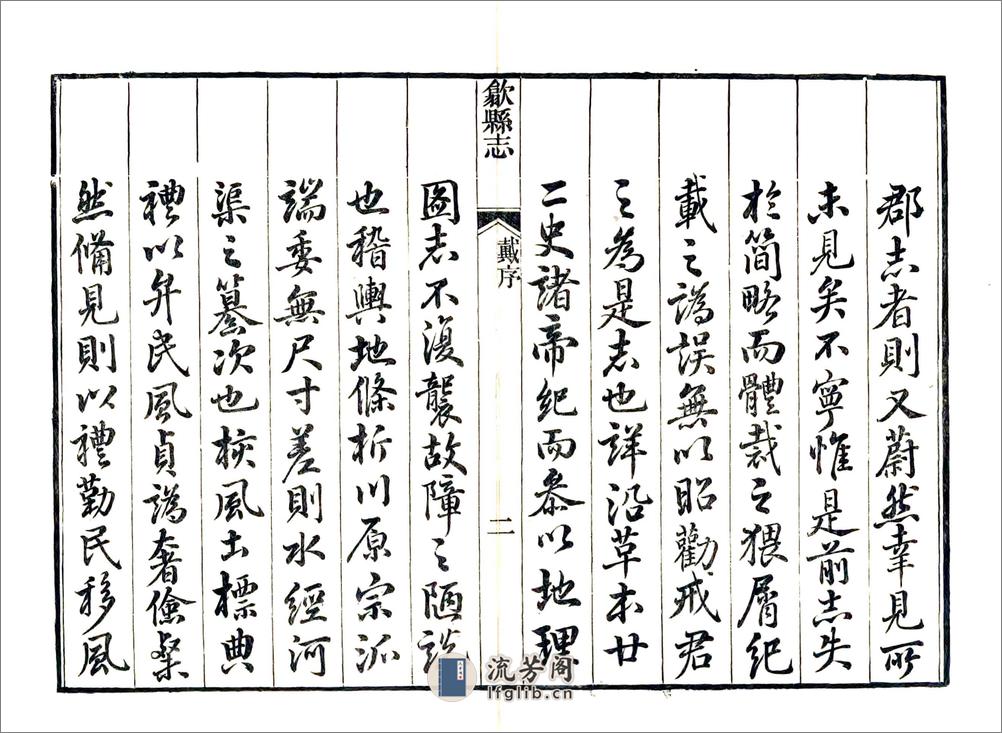 郡志者則又蔚然幸見所
未見矣不寧惟是前志失
於簡略而體裁之猥屑紀
載之譌誤無以昭勸戒君
之為是志也詳沿革本廿
二史諸帝紀而叅以地理
歙縣志
戴序
二
圖志不復襲故障之陋說
也稽輿地條析川原宗派
端委無尺寸差則水經河
渠之纂次也核風土標典
禮以弁民風貞譌奢儉粲
然備見則以禮勤民移風
流芳阁
lfglib.cn